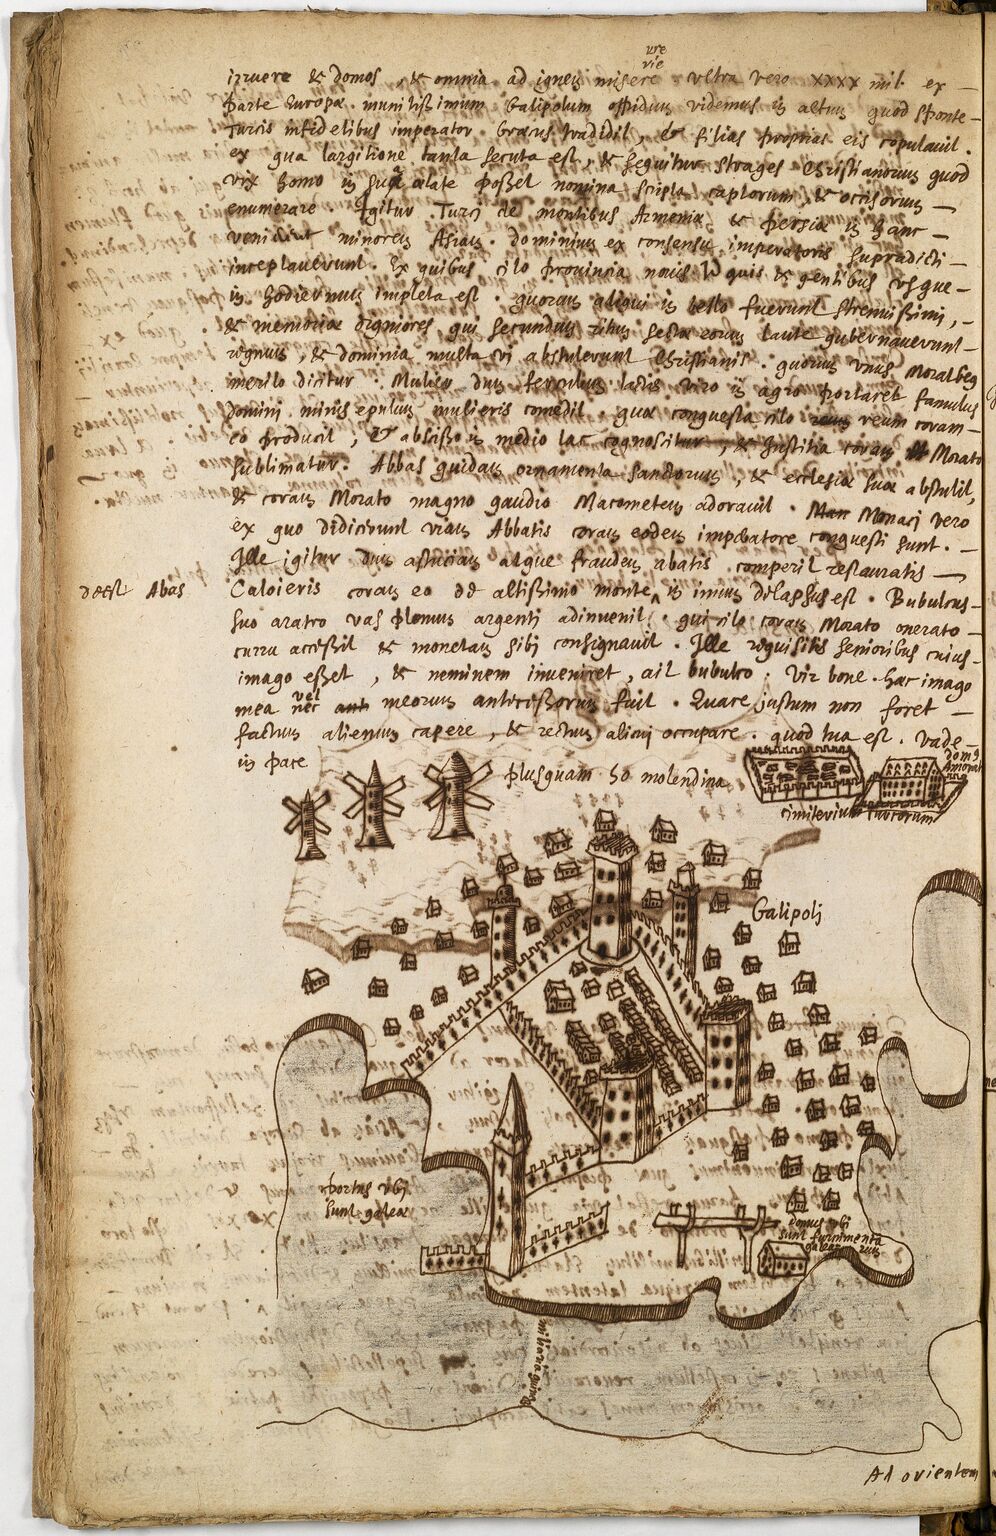 vre
vie
izuere & domos, & omnia ad ignem misere vltra vero XXXX mil. ex
parte Europæ munitißimum Galipolum oppidum videmus in altum quod sponte
Turcis infidelibus imperator Græcus tradidit, & filias proprias eis copulauit.
ex qua largitione tanta secuta est, & sequitur strages Christianorum quod
vix homo in sua ætate poßet nomina scripta captorum, & occisorum
enumerare Igitur Turci de montibus Armeniæ & Persiæ in hanc
venierunt minorem Asiam dominium ex consensu imperatoris supradicti
inceptauerunt. Ex quibus cito prouincia nouis quis & gentibus vsque
in hodiernum impleta est. quorum aliqui in bello fuerunt strenuißimi,
& memoriæ digniores, qui secundum ritus sectæ eorum laute gubernauerunt
regnum, & dominia multa vi abstulerunt Christianis. quorum vnus Moratbeg
merito dicitur. Mulier dum ferculum lactis viro in agro portaret famulus
domini minis epulum mulieris comedit. quæ conquesta cito reum coram
eo producit, & absißo in medio lac cognoscitur, & Justitia coram Morato
sublimatur. Abbas quidam ornamenta sanctorum, & ecclesiæ suæ abstulit,
& coram Morato magno gaudio Macometum adorauit. Monaci vero
ex quo didicerunt viam Abbatis coram eodem imperatore conquesti sunt.
Ille igitur dum astuciam atque fraudem abatis comperit restauratis
deest Abas Caloieris coram eo de altißimo monte in imum delapsus est. Bubulcus
suo aratro vas plenum argenti adinuenit. qui cito coram Morato onerato
curru acceßit & monetam sibi consignauit. Ille requisitis senioribus cuius
imago eßet, & neminem inueniret, ait bubulco. Vir bone. hæc imago
mea nec vel aut meorum anteceßorum fuit. Quare justum non foret
factum alienum capere, & rectum alicui occupare. quod tua est. Vade
in pace
plusquam ho molendina
domus
Amorat
cimiterium turcorum
Galipolj
portus vbj
sunt galeæ
domus vbi
sunt furnimenta
galearum
miliaria
Ad orientem